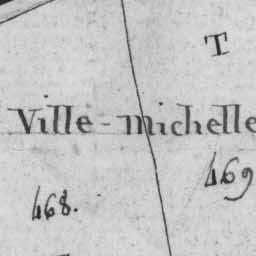 T
Ville-michelle
469
468.